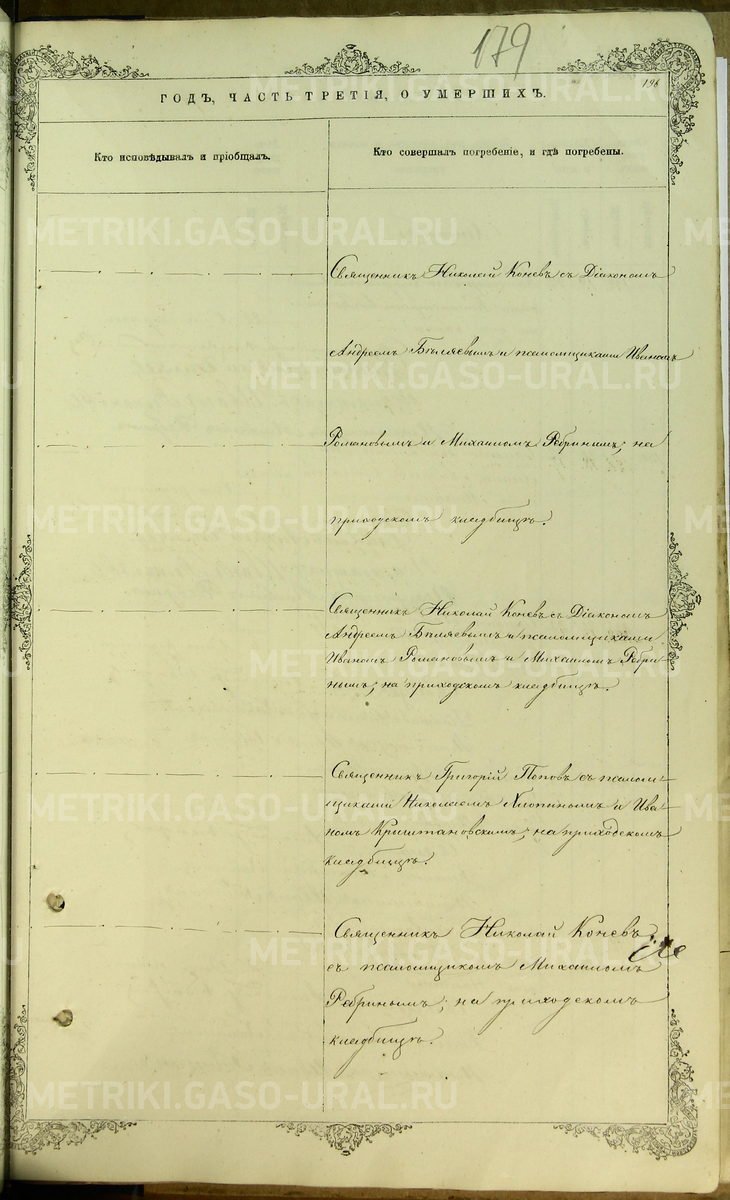 179
196
ГОДЪ, ЧАСТЬ ТРЕТІЯ, О УМЕРШИХЪ.
Кто исповѣдывалъ и пріобщалъ.
Кто совершалъ погребеніе, и гдѣ погребены.
Священникъ Николай Коневъ съ Діакономъ
Андреемъ Бѣляевымъ и псаломщиками Иваномъ
Романовымъ и Михаиломъ Ребринымъ; на
приходскомъ кладбищѣ.
Священникъ Николай Коневъ съ Діакономъ
Андреемъ Бѣляевымъ и псаломщиками
Иваномъ Романовымъ и Михаиломъ Ребри
нымъ; на приходскомъ кладбищѣ.
Священникъ Григорій Поповъ съ псалом-
щиками Николаемъ Хлопинымъ и Ива
номъ Криштановскимъ; на приходскомъ
кладбищѣ.
Священникъ Николай Коневъ
съ псаломщикомъ Михаиломъ
Ребринымъ; на приходскомъ
кладбищѣ.
METRIKI.GASO-URAL.RU